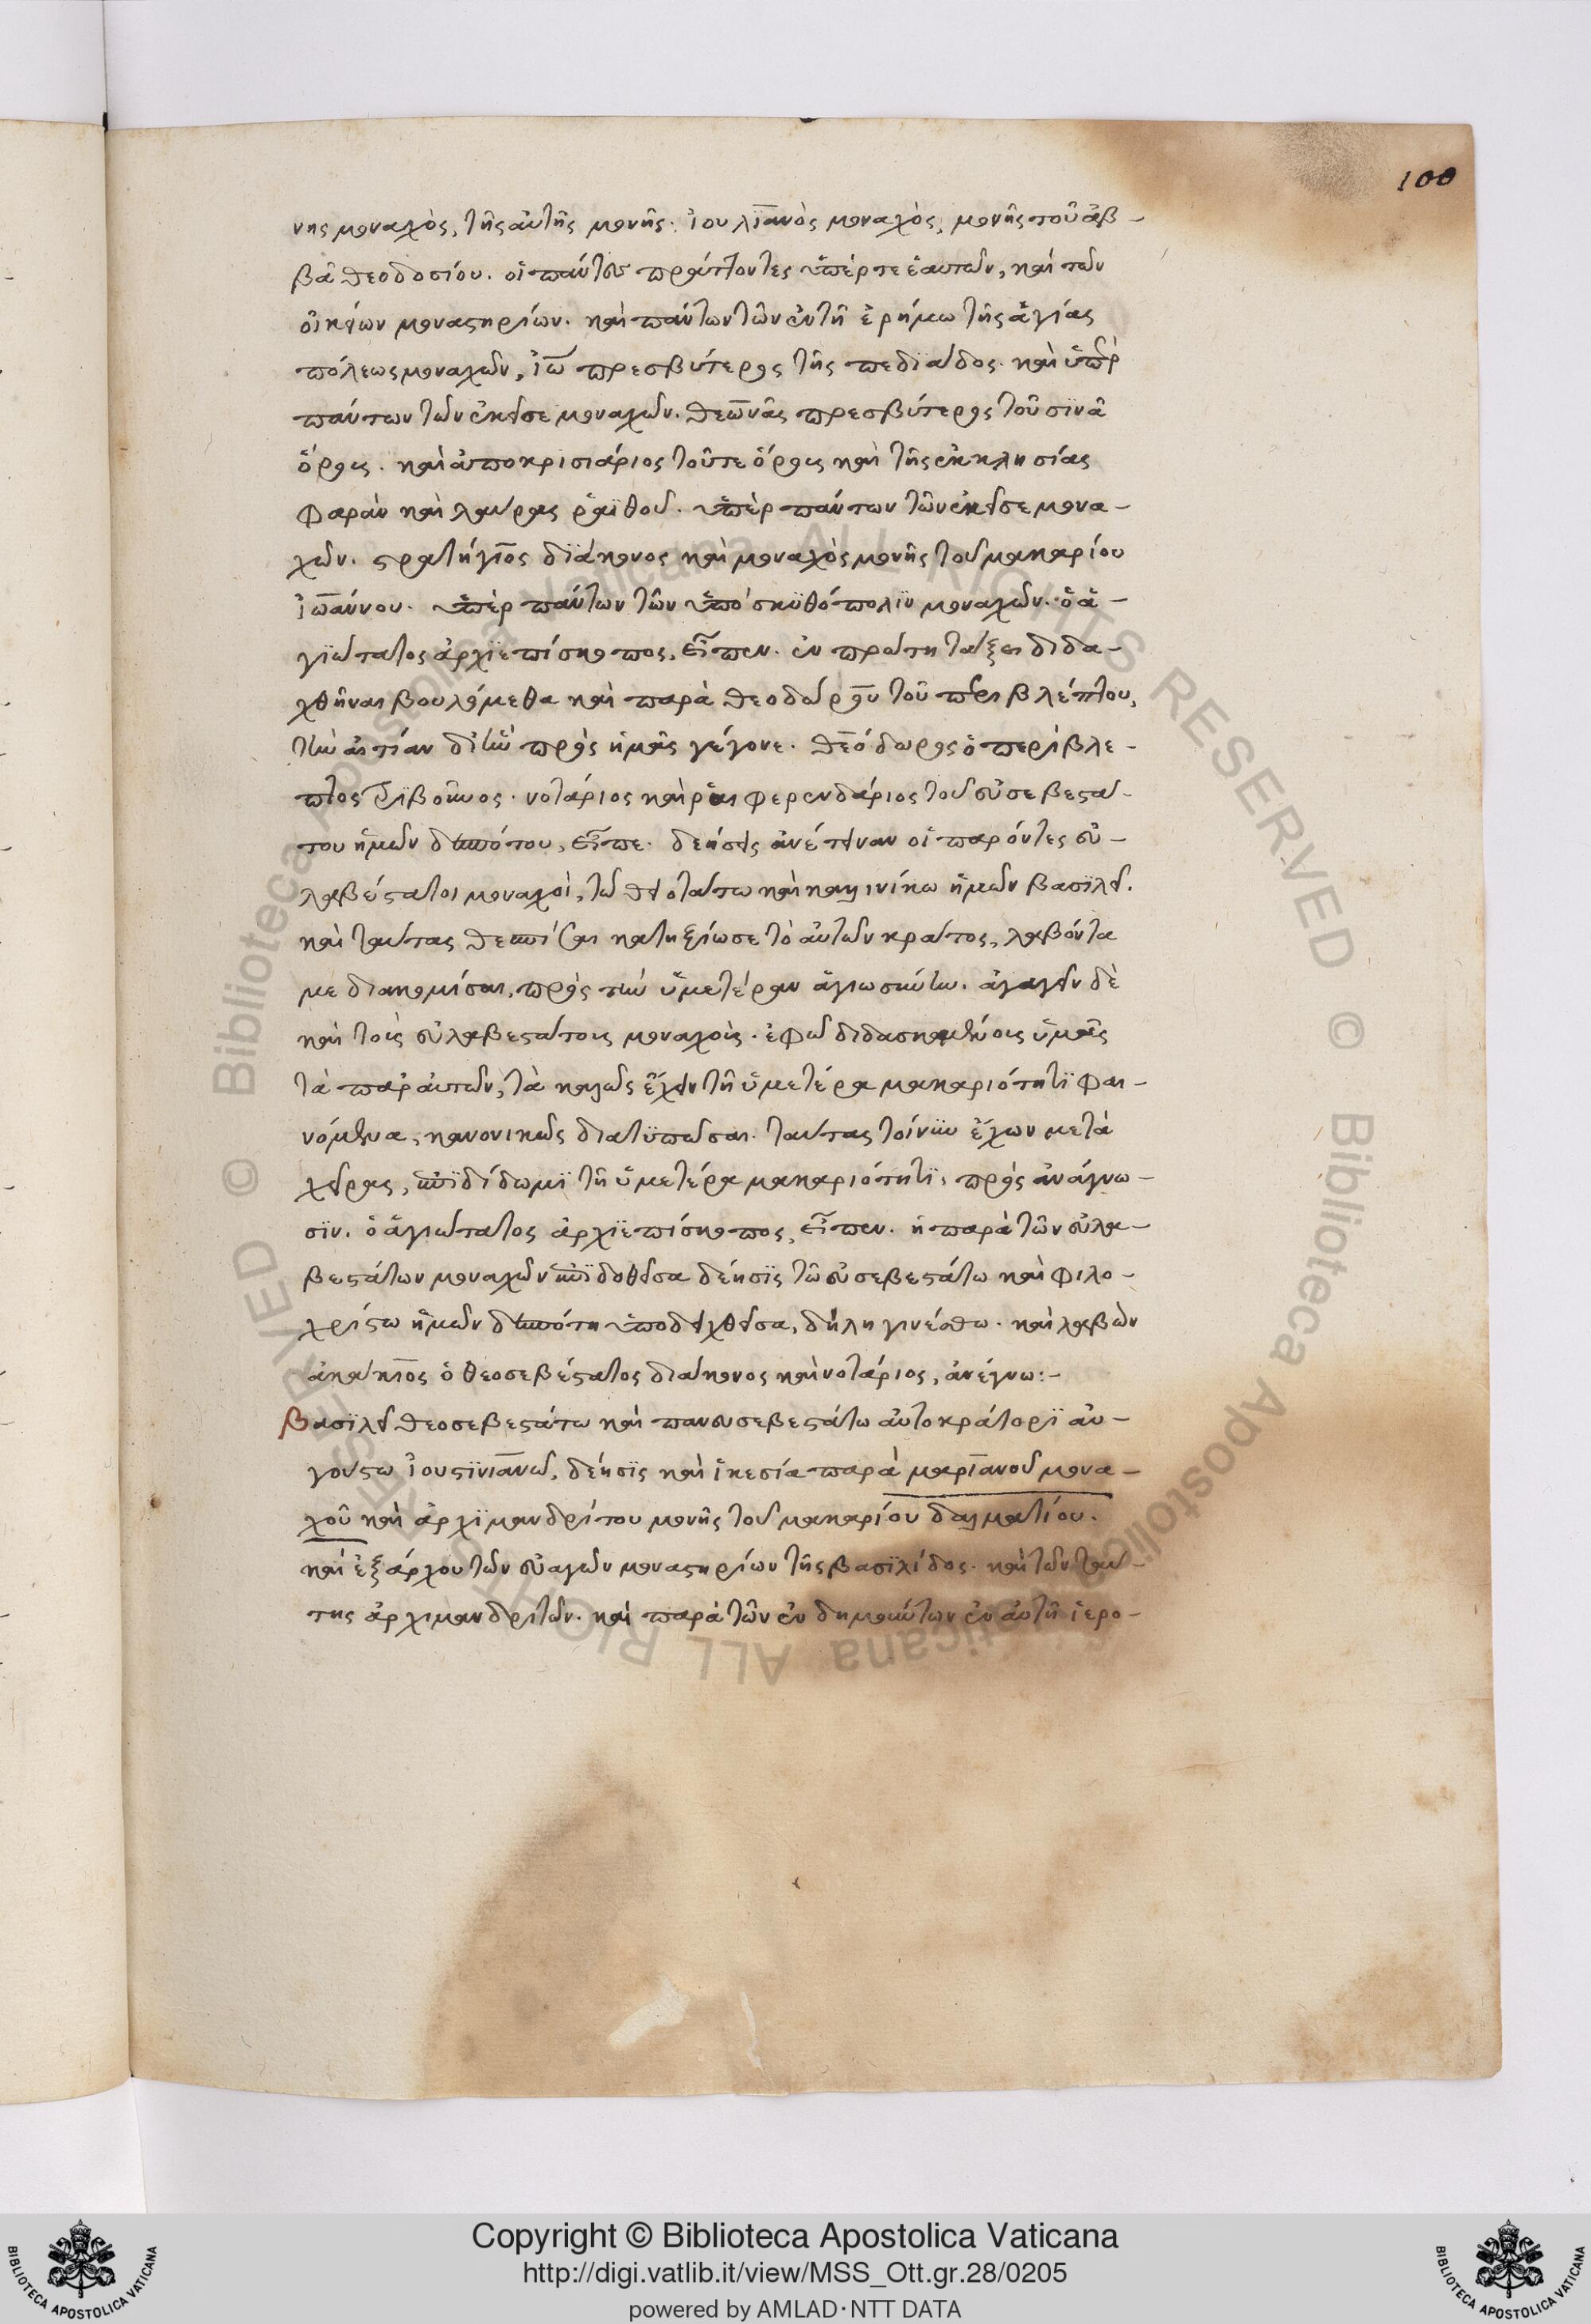 100
νης μοναχὸς, τῆς αὐτῆς μονῆς· ἰουλιανὸς μοναχὸς, μονῆς τοῦ ἀβ-
βᾶ θεοδοσίου. οἱ πάντες πράττοντες ὑπέρ τε ἑαυτῶν, καὶ τῶν
οἰκείων μοναστηρίων. καὶ πάντων τῶν ἐν τῇ ἐρήμω τῆς ἁγίας
πόλεως μοναχῶν, ἰω πρεσβύτερος τῆς πεδϊάδος. καὶ ὑπὲρ
πάντων τῶν ἐκεῖσε μοναχῶν. θεωνᾶς πρεσβύτερος τοῦ σϊνᾶ
ὄρους. καὶ ἀποκρισιάριος τοῦ τε ὄρους καὶ τῆς ἐκκλησίας
φαρὰν καὶ λαύρας ῥαϊθοῦ. ὑπὲρ πάντων τῶν ἐκεῖσε μονα-
χῶν. στρατήγιος δϊάκονος καὶ μοναχὸς μονῆς τοῦ μακαρίου
ἰωάννου. ὑπὲρ πάντων τῶν ὑπὸ σκϋθόπολϊν μοναχῶν. ὁ ἁ-
γϊώτατος ἀρχϊεπίσκοπος, εἶπεν. ἐν πρώτη τάξει διδα-
χθῆναι βουλόμεθα καὶ παρὰ θεοδώρου τοῦ περιβλέπτου,
τὴν αἰτίαν δι' ἣν πρὸς ἡμᾶς γέγονε. θεόδωρος ὁ περίβλε-
πτος τριβοῦνος. νοτάριος καὶ ῥαιφερενδάριος τοῦ εὐσεβεστά-
του ἡμῶν δεσπότου, εἶπε. δεήσεις ἀνέτειναν οἱ παρόντες εὐ-
λαβέστατοι μοναχοὶ, τῶ θειοτάτω καὶ καλλινίκω ἡμῶν βασϊλεῖ.
καὶ ταύτας θεσπίσαι κατηξίωσε τὸ αὐτῶν κράτος, λαβόντα
με διακομίσαι, πρὸς τὴν ὑμετέραν ἁγιωσύνην. ἀγαγεῖν δὲ
καὶ τοὺς εὐλαβεστάτους μοναχοὺς. ἐφῶ διδασκομένους ὑμᾶς
τὰ παρ' αὐτῶν, τὰ καλῶς ἔχειν τῇ ὑμετέρα μακαριότητϊ φαι-
νόμενα, κανονικῶς διατϋπῶσαι. ταύτας τοίνϋν ἔχων μετὰ
χεῖρας, ἐπϊδίδωμϊ τῇ ὑμετέρα μακαριότητϊ, πρὸς ἀνάγνω-
σϊν. ὁ ἁγιώτατος ἀρχϊεπίσκοπος, εἶπεν. ἡ παρὰ τῶν εὐλα-
βεστάτων μοναχῶν ἐπϊδοθεῖσα δέησϊς τῶ εὐσεβεστάτω καὶ φιλο-
χρίστω ἡμῶν δεσπότη ὑποδειχθεῖσα, δήλη γινέσθω. καὶ λαβὼν
ἀκάκιος ὁ θεοσεβέστατος διάκονος καὶ νοτάριος, ἀνέγνω:-
Βασϊλεῖ θεοσεβεστάτω καὶ πανευσεβεστάτω αὐτοκράτορϊ αὐ-
γούστω ἰουστϊνιανῶ, δέησϊς καὶ ἱκεσία παρὰ μαριανοῦ μονα-
χοῦ καὶ ἀρχϊμανδρίτου μονῆς τοῦ μακαρίου δαλματίου.
καὶ ἐξάρχου τῶν εὐαγῶν μοναστηρίων τῆς βασϊλίδος. καὶ τῶν ταύ-
της ἀρχιμανδριτῶν. καὶ παρὰ τῶν ἐνδημούντων ἐν αὐτῇ ἱερο-
© Biblioteca Apostolica Vaticana ALL RIGHTS RESERVED © Biblioteca Apostolica Vaticana ALL RIGHTS RESERVED
Copyright © Biblioteca Apostolica Vaticana
http://digi.vatlib.it/view/MSS_Ott.gr.28/0205
powered by AMLAD·NTT DATA
BIBLIOTECA APOSTOLICA VATICANA
BIBLIOTECA APOSTOLICA VATICANA